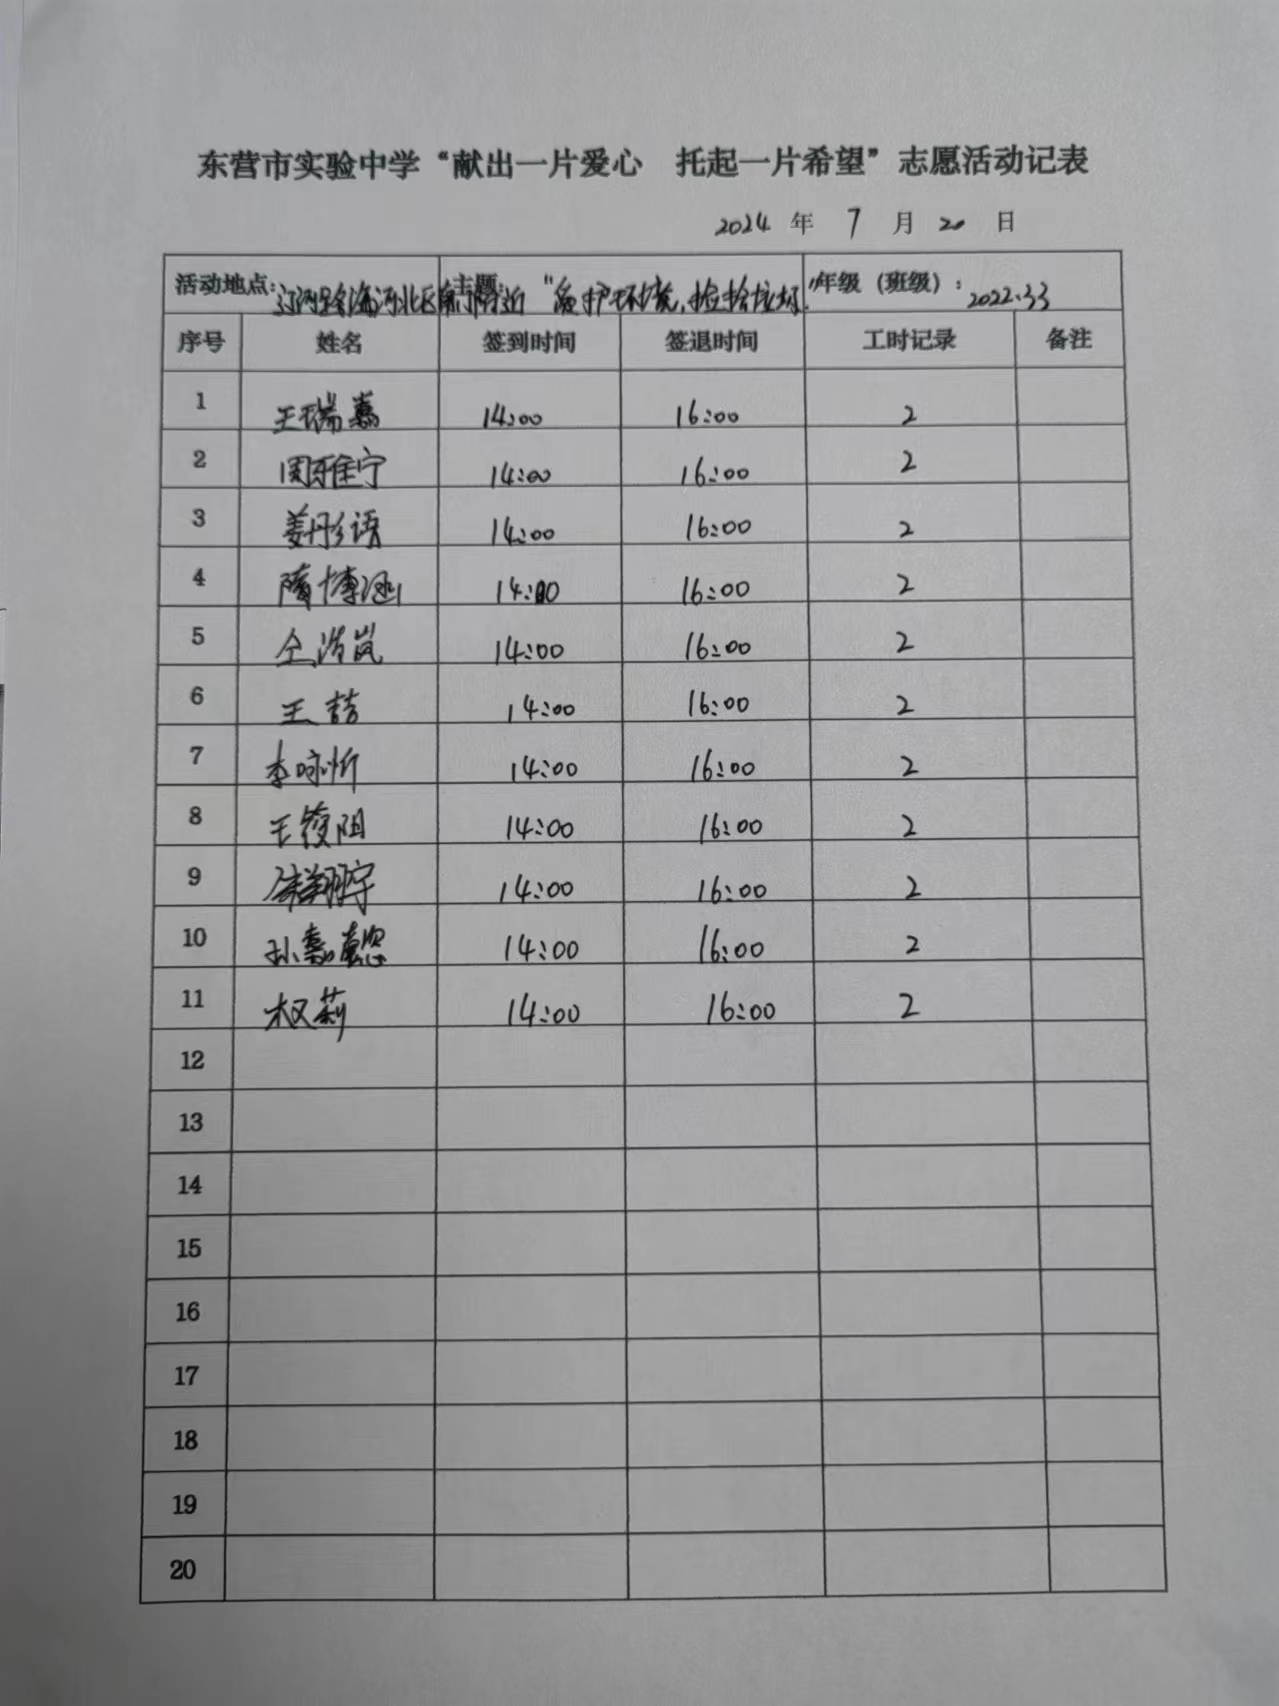 东营市实验中学“献出一片爱心 托起一片希望”志愿活动记表
2024 年 7 月 20 日
活动地点：辽河路海河北区南门附近 主题：“爱护环境，捡拾垃圾” 年级（班级）：2022.33
序号 姓名 签到时间 签退时间 工时记录 备注
1 王瑞嘉 14:00 16:00 2
2 周雅宁 14:00 16:00 2
3 姜彤语 14:00 16:00 2
4 隋博涵 14:00 16:00 2
5 仝浩岚 14:00 16:00 2
6 王喆 14:00 16:00 2
7 李咏忻 14:00 16:00 2
8 王筱阳 14:00 16:00 2
9 翔宇 14:00 16:00 2
10 孙嘉 14:00 16:00 2
11 权莉 14:00 16:00 2
12
13
14
15
16
17
18
19
20